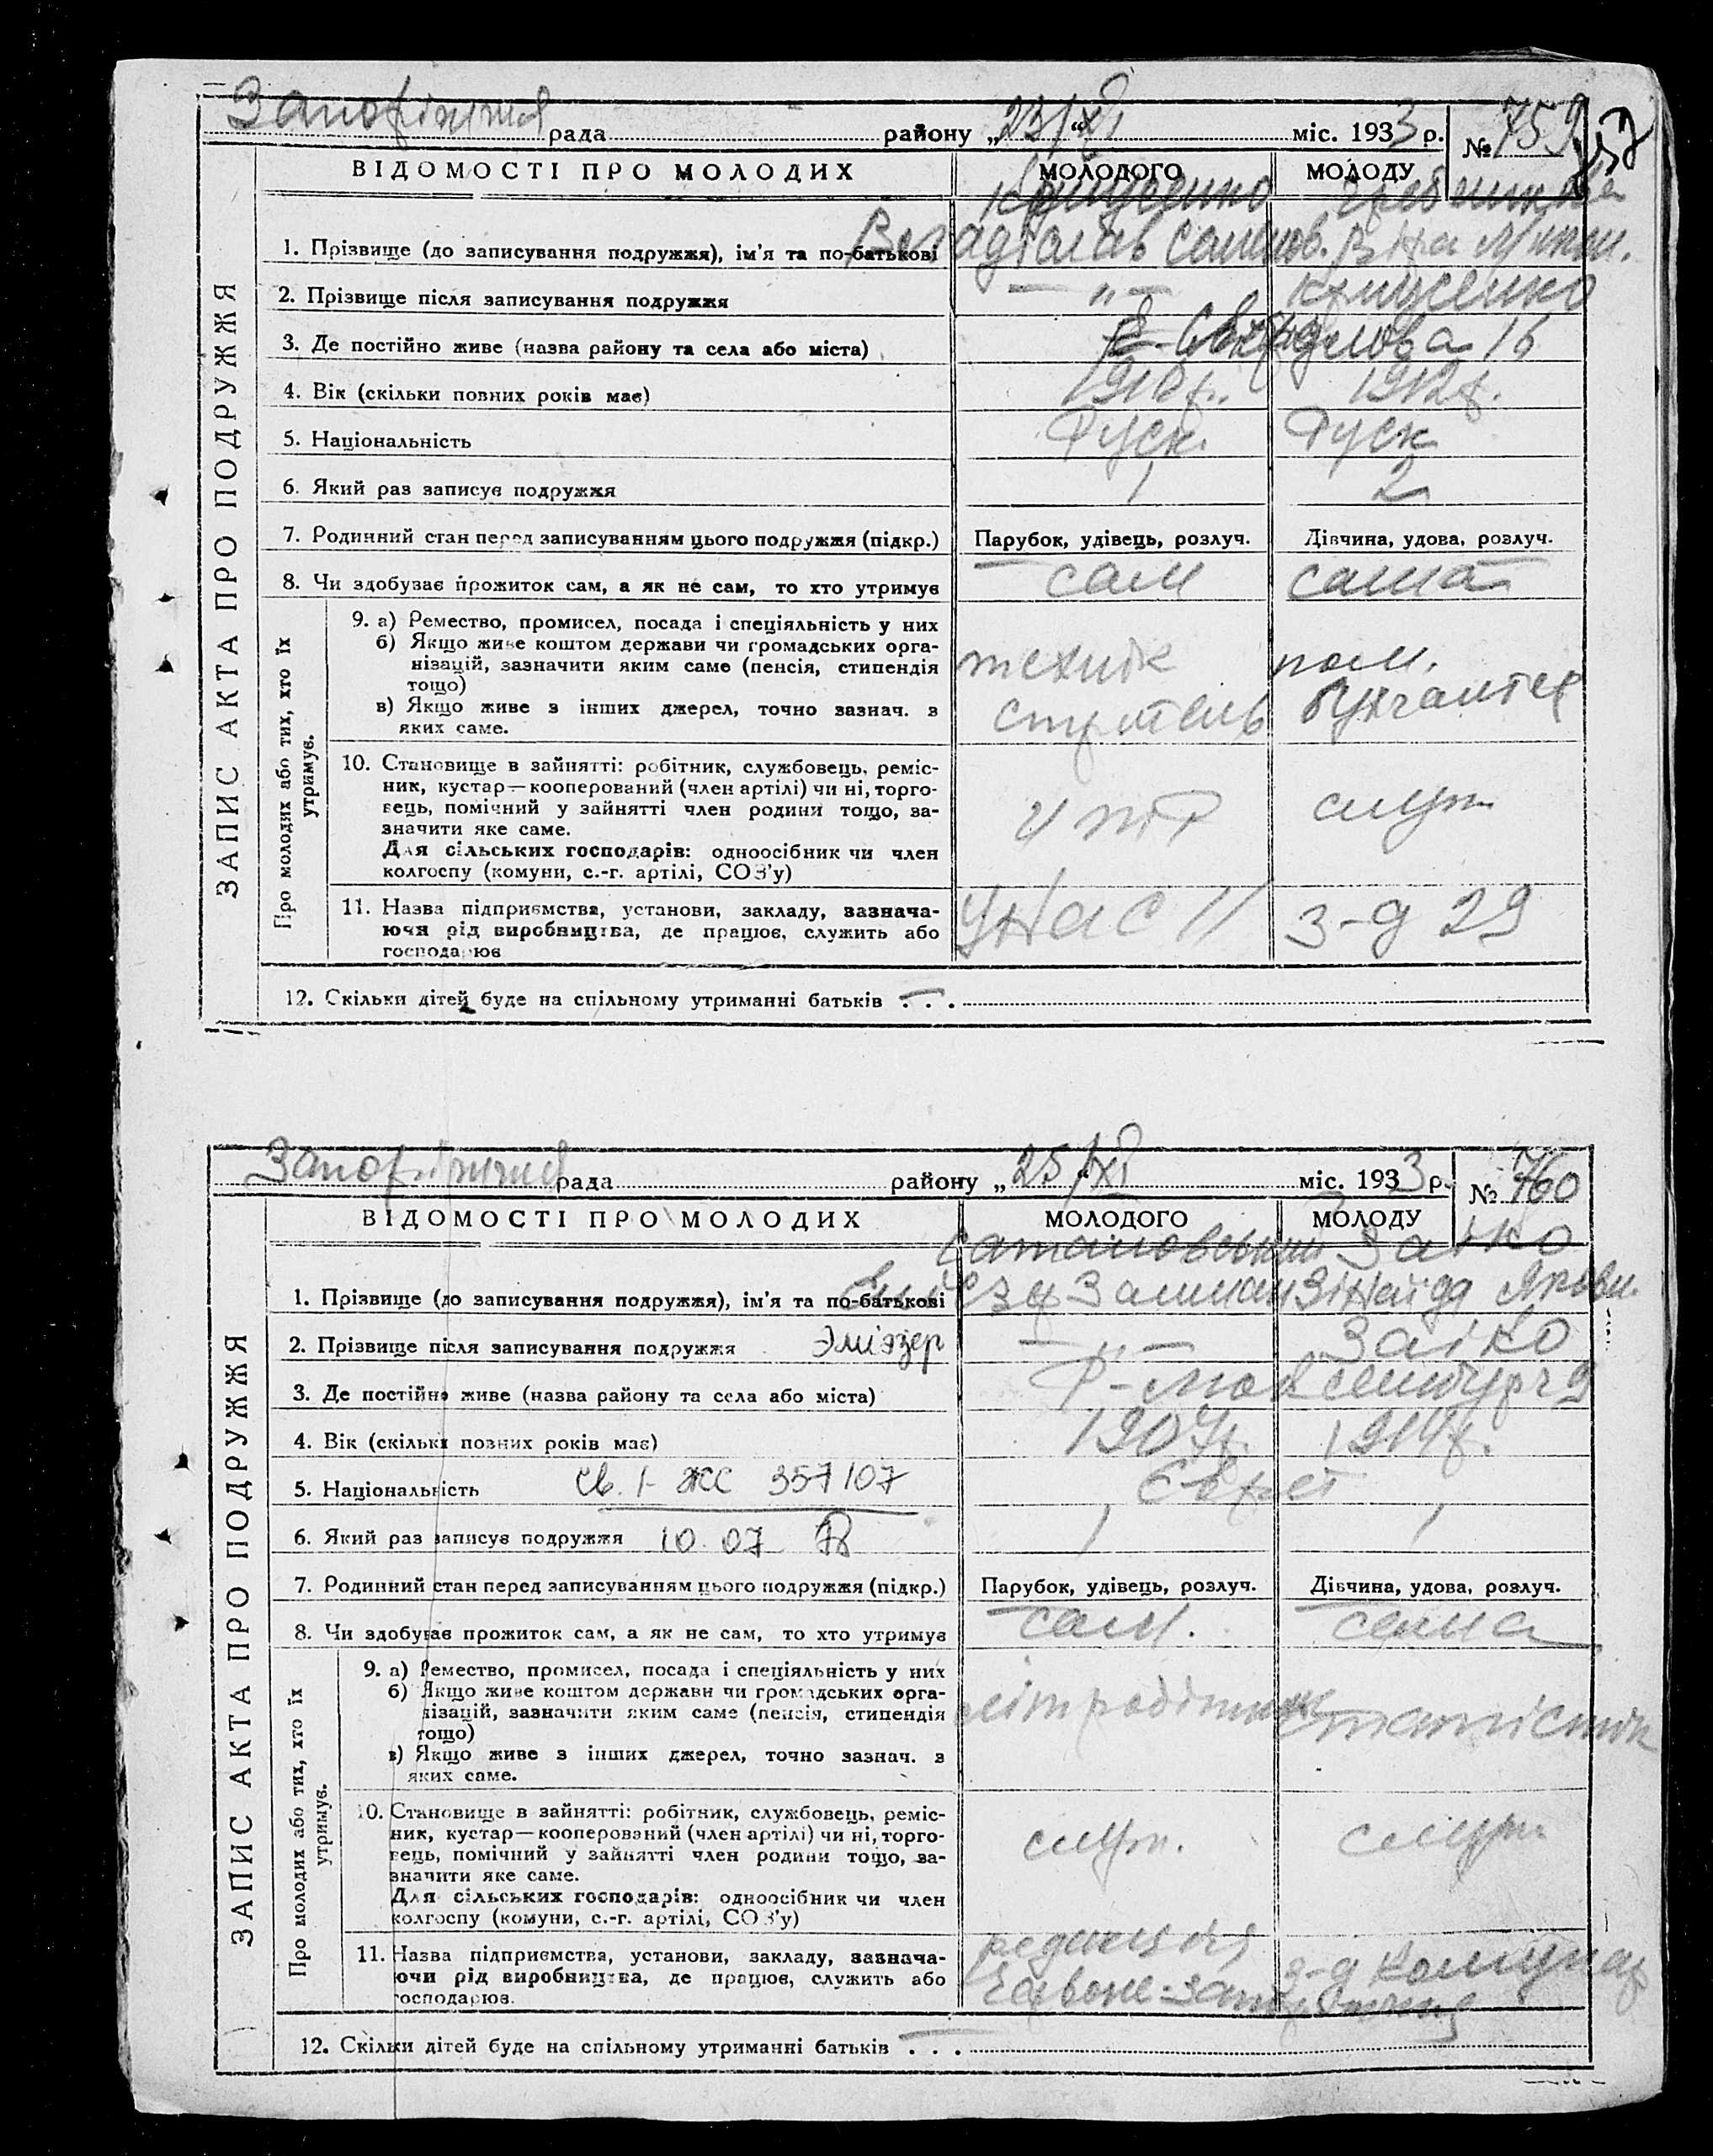 Запоріжжя рада району „23/XI“ міс. 1933 р. № 759
ВІДОМОСТІ ПРО МОЛОДИХ МОЛОДОГО МОЛОДУ
1. Прізвище (до записування подружжя), ім'я та по-батькові
2. Прізвище після записування подружжя — „ —
3. Де постійно живе (назва району та села або міста) 16
4. Вік (скільки повних років має) 1912р.
5. Національність Руск. Руск
6. Який раз записує подружжя 1 2
7. Родинний стан перед записуванням цього подружжя (підкр.) Парубок, удівець, розлуч. Дівчина, удова, розлуч.
8. Чи здобуває прожиток сам, а як не сам, то хто утримує сам сама
ЗАПИС АКТА ПРО ПОДРУЖЖЯ
Про молодих або тих, хто їх утримує.
9. а) Ремество, промисел, посада і спеціяльність у них
б) Якщо живе коштом держави чи громадських орга-
нізацій, зазначити яким саме (пенсія, стипендія
тощо)
в) Якщо живе з інших джерел, точно зазнач. з
яких саме.
технік пом.
строітель бухгалтер
10. Становище в зайнятті: робітник, службовець, реміс-
ник, кустар—кооперований (член артілі) чи ні, торго-
вець, помічний у зайнятті член родини тощо, за-
значити яке саме.
Для сільських господарів: одноосібник чи член
колгоспу (комуни, с.-г. артілі, СОЗ'у)
ИТР служ.
11. Назва підприємства, установи, закладу, зазнача-
ючи рід виробництва, де працює, служить або
господарює
УНАС 11 з-д 29
12. Скільки дітей буде на спільному утриманні батьків . . . —
Запоріжжя рада району „25/XI“ міс. 1933 р. № 760
ВІДОМОСТІ ПРО МОЛОДИХ МОЛОДОГО МОЛОДУ
Сатановський Заіко
1. Прізвище (до записування подружжя), ім'я та по-батькові Еліезер Залман Зінаїда Яковл.
2. Прізвище після записування подружжя Эліэзер — „ — Заіко
3. Де постійно живе (назва району та села або міста)
4. Вік (скільки повних років має) 1907р. 1914р.
5. Національність св. І-ЖС 357107 Євреї
6. Який раз записує подружжя 10.07 1 1
7. Родинний стан перед записуванням цього подружжя (підкр.) Парубок, удівець, розлуч. Дівчина, удова, розлуч.
8. Чи здобуває прожиток сам, а як не сам, то хто утримує сам. сама
ЗАПИС АКТА ПРО ПОДРУЖЖЯ
Про молодих або тих, хто їх утримує.
9. а) Ремество, промисел, посада і спеціяльність у них
б) Якщо живе коштом держави чи громадських орга-
нізацій, зазначити яким саме (пенсія, стипендія
тощо)
в) Якщо живе з інших джерел, точно зазнач. з
яких саме.
літробітник статистик
10. Становище в зайнятті: робітник, службовець, реміс-
ник, кустар—кооперований (член артілі) чи ні, торго-
вець, помічний у зайнятті член родини тощо, за-
значити яке саме.
Для сільських господарів: одноосібник чи член
колгоспу (комуни, с.-г. артілі, СОЗ'у)
служ. служ.
11. Назва підприємства, установи, закладу, зазнача-
ючи рід виробництва, де працює, служить або
господарює.
редакція з-д Комунар
Червоне Запоріжжя
12. Скільки дітей буде на спільному утриманні батьків . . . —